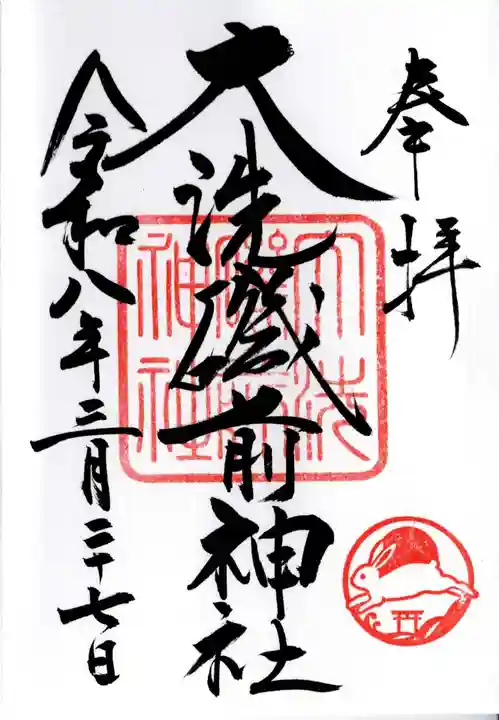 奉拝
大洗磯前神社
大洗磯前神社
令和八年三月二十七日